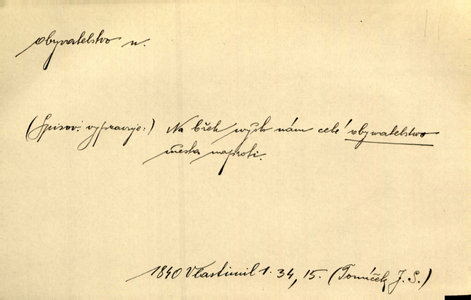 obyvatelstvo n.
(Spisov. vypravuje:) Na břeh vyšlo nám celé obyvatelstvo
města naproti.
1840 Vlastimil 1. 34, 15. (Tomíček J. S.)